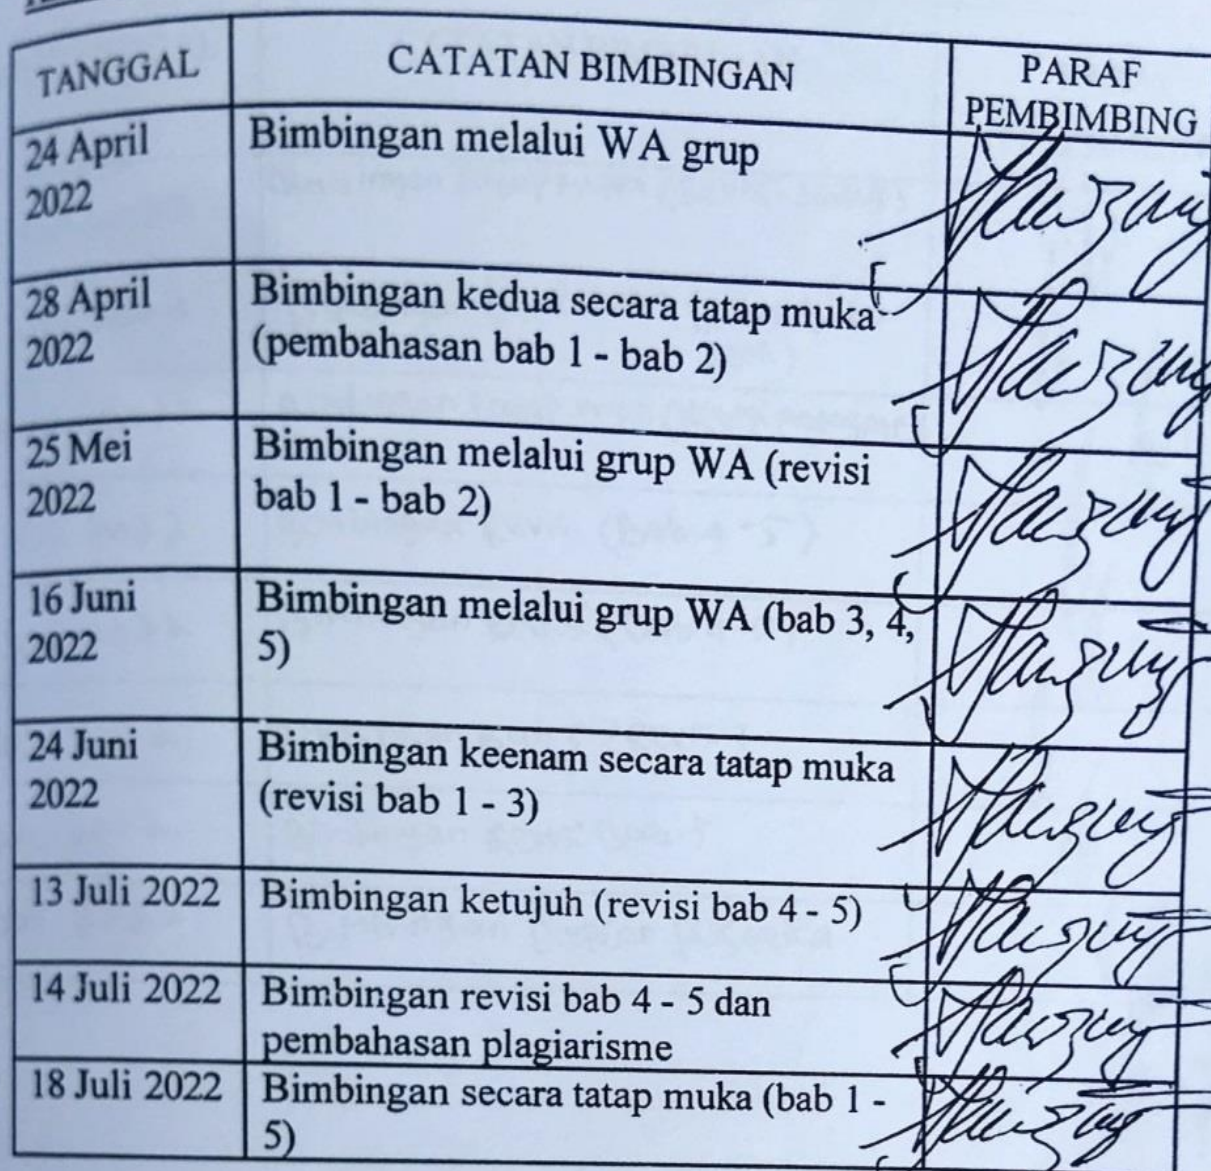 TANGGAL CATATAN BIMBINGAN PARAF
PEMBIMBING
24 April Bimbingan melalui WA grup
2022
28 April Bimbingan kedua secara tatap muka
2022 (pembahasan bab 1 - bab 2)
25 Mei Bimbingan melalui grup WA (revisi
2022 bab 1 - bab 2)
16 Juni Bimbingan melalui grup WA (bab 3, 4,
2022 5)
24 Juni Bimbingan keenam secara tatap muka
2022 (revisi bab 1 - 3)
13 Juli 2022 Bimbingan ketujuh (revisi bab 4 - 5)
14 Juli 2022 Bimbingan revisi bab 4 - 5 dan
pembahasan plagiarisme
18 Juli 2022 Bimbingan secara tatap muka (bab 1 -
5)